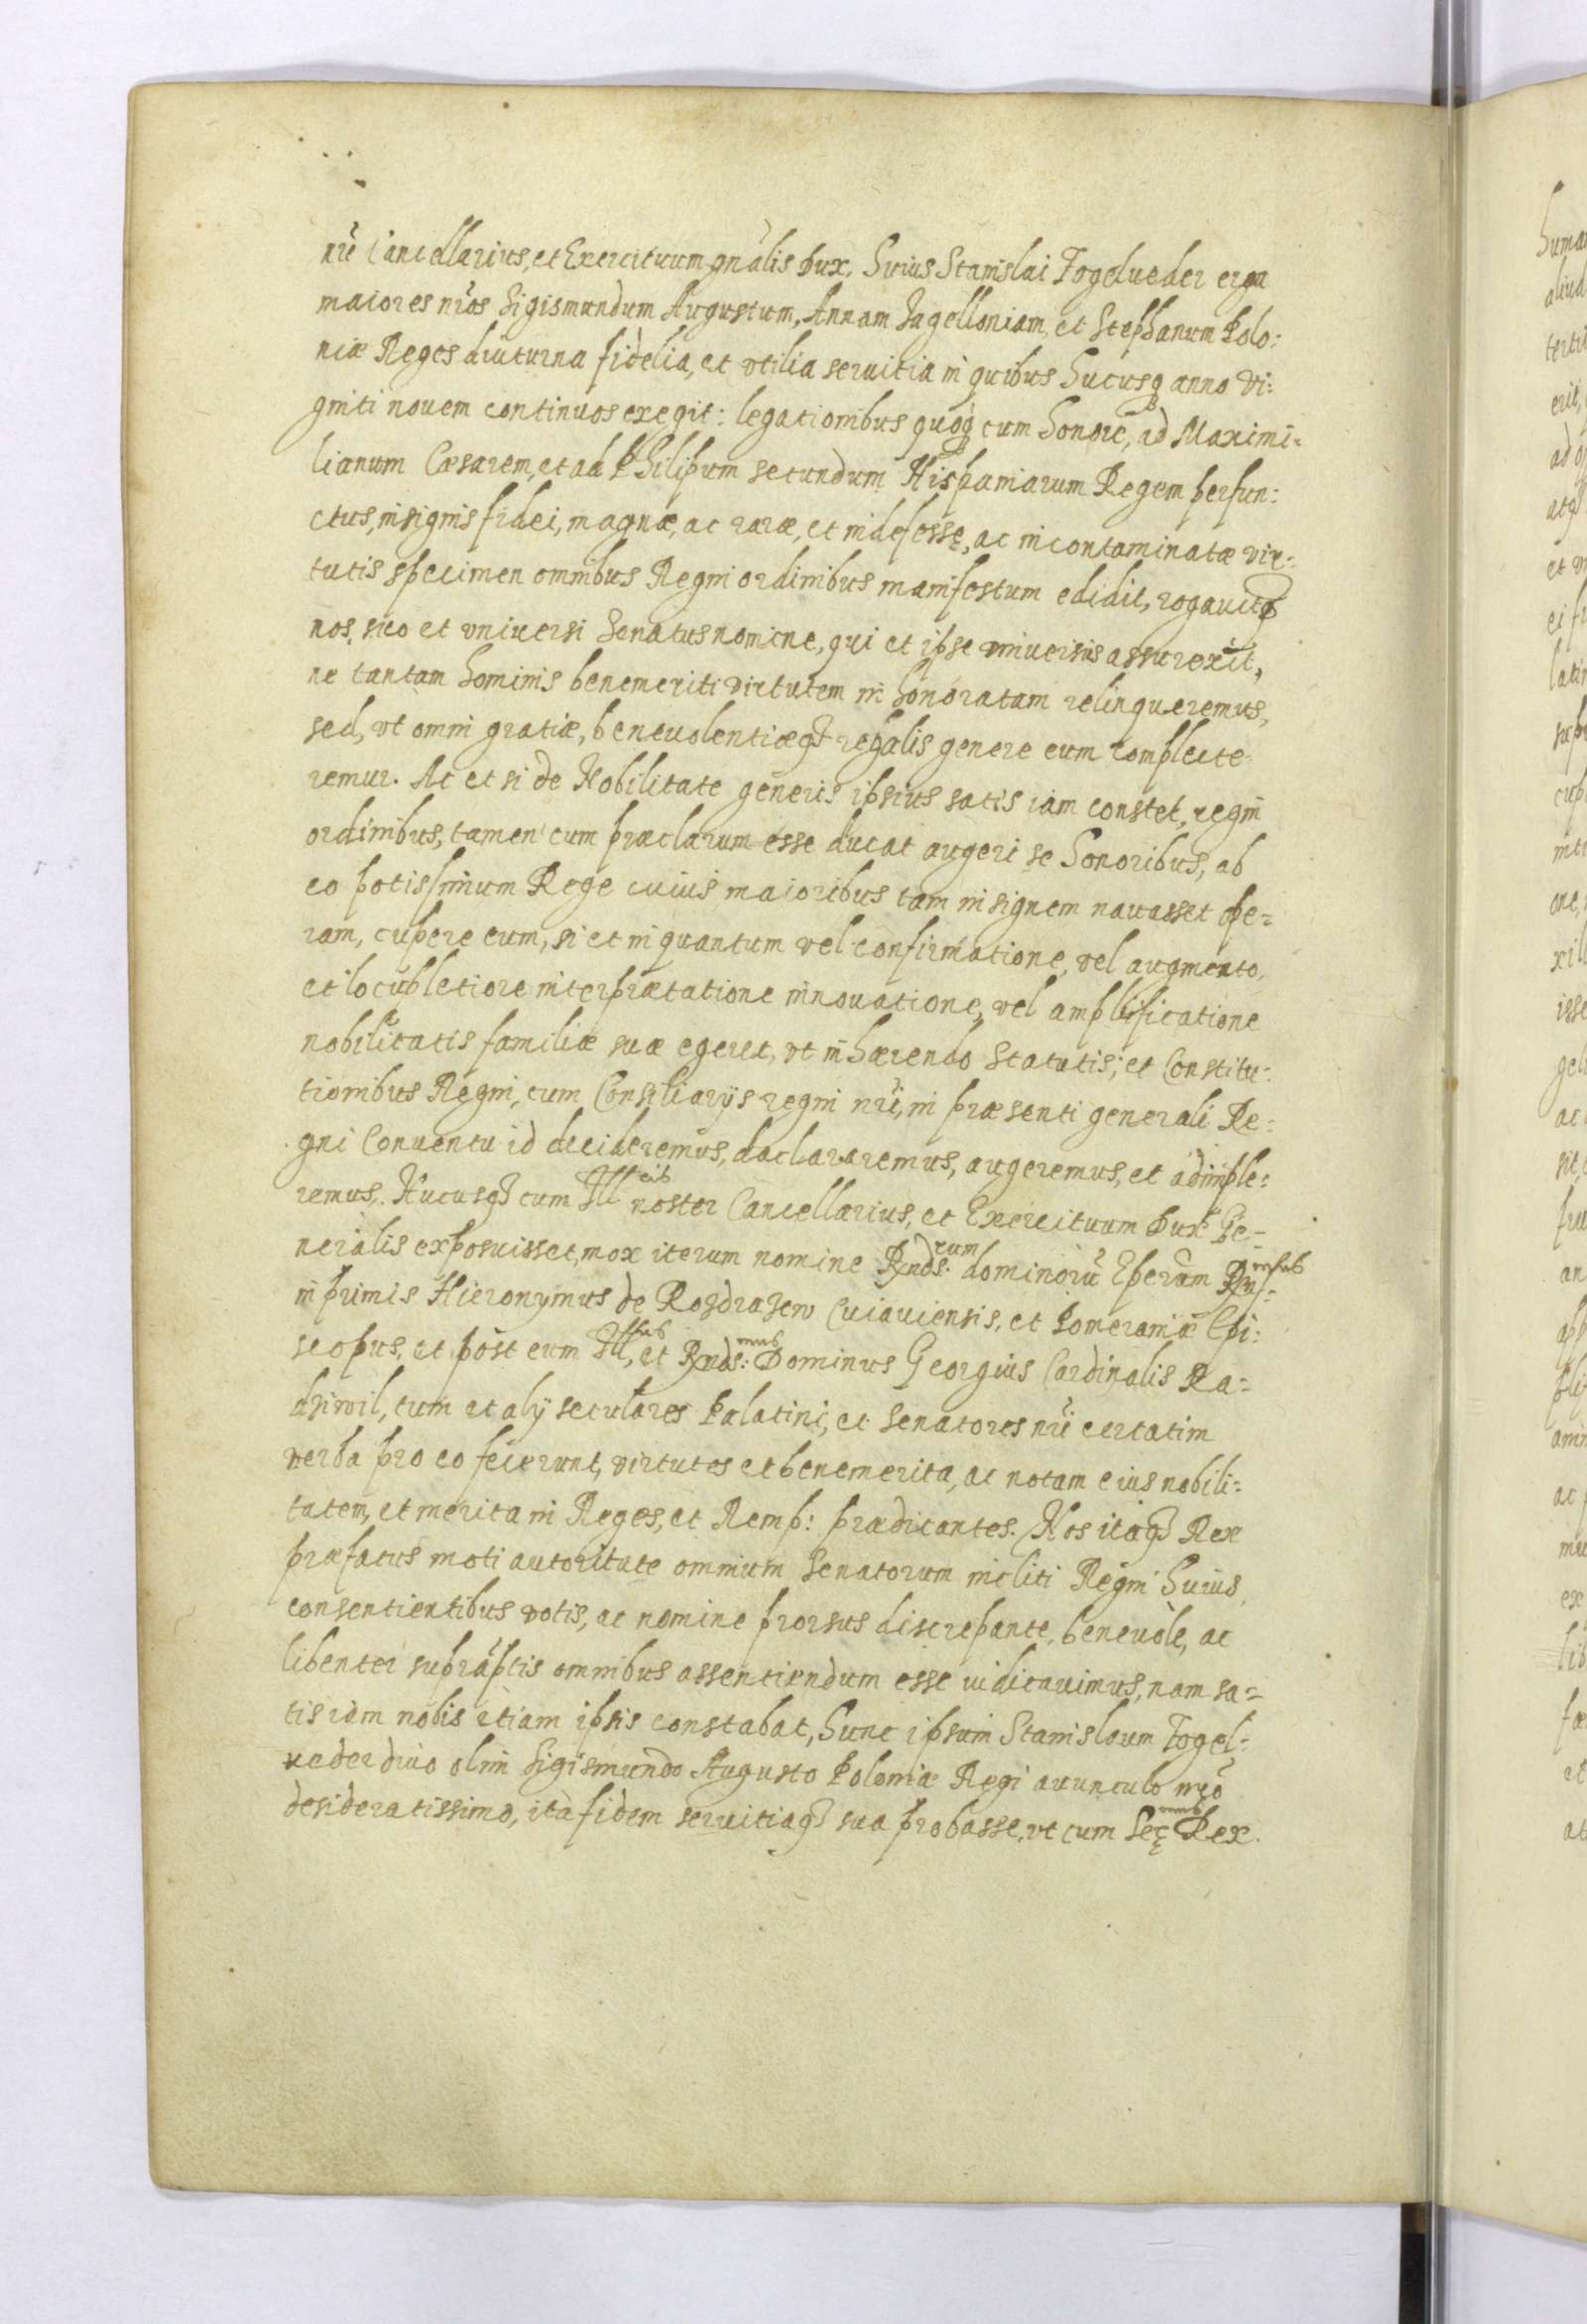 nũ Cancellarius, et Exercituum gnãlis Dux, huius Stanislai Fogelueder erga
maiores nr̃os Sigismundum Augustum, Annam Jagelloniam, et Stephanum Polo:
niæ Reges diuturna fidelia, et vtilia seruitia in quibus hucusq anno vi:
gniti nouem continuos exegit: legationibus quoq cum honore, ad Maximi:
lianum Cæsarem, et ad Philipum secundum Hispaniarum Regem perfun:
ctus, insignis fidei, magnæ, ac raræ, et indefessę, ac incontaminatæ vir:
tutis specimen omnibus Regni ordinibus manifestum edidit, rogauitq
nos, suo et vniuersi Senatus nomine, qui et ipse vniuersus assurexit,
ne tantam hominis benemeriti virtutem in honoratam relinqueremus,
sed, vt omni gratiæ, beneuolentiæq regalis genere eum complecte
remur. Ac et si de Nobilitate generis ipsius satis iam constet, regni
ordinibus, tamen cum præclarum esse ducat augeri se honoribus, ab
eo potissimum Rege cuius maioribus tam insignem nauasset ope:
ram, cupere eum, si et in quantum vel confirmatione, vel augmento,
et locupletiore interprætatione innouatione, vel amplificatione
nobilitatis familiæ suæ egeret, vt inhærendo Statutis, et Constitu:
tionibus Regni, cum Consiliarijs regni nr̃i, in præsenti generali Re:
gni Conuentu id decideremus, daclararemus, augeremus, et adimple:
remus. Hucusq cum Ill noster Cancellarius, et Exercituum Dux Ge:
neralis exposuisset, mox iterum nomine Rnds:rum dominorũ Eperum
in primis Hieronymus de Rozdrazew Cuiauiensis, et Pomeraniæ Epi:
scopus, et post eum Ill, et Rnds:mus Dominus Georgius Cardinalis Ra:
dziwil, tum et alij seculares Palatini, et Senatores nr̃i certatim
verba pro eo fecerunt, virtutes et benemerita, ac notam eius nobili:
tatem, et merita in Reges, et Remp: prædicantes. Nos itaq Rex
præfatus moti autoritate omnium Senatorum incliti Regni huius,
consentientibus votis, ac nomine prorsus discrepante, beneuole, ac
libenter suprãptis omnibus assentiendum esse iudicauimus, nam sa:
tis iam nobis etiam ipsis constabat, hunc ipsum Stanislaum Fogel:
ueder diuo olim Sigismundo Augusto Poloniæ Regi auunculo nrõ
desideratissimo, ita fidem seruitiaq sua probasse, vt cum Seę:mus Rex.